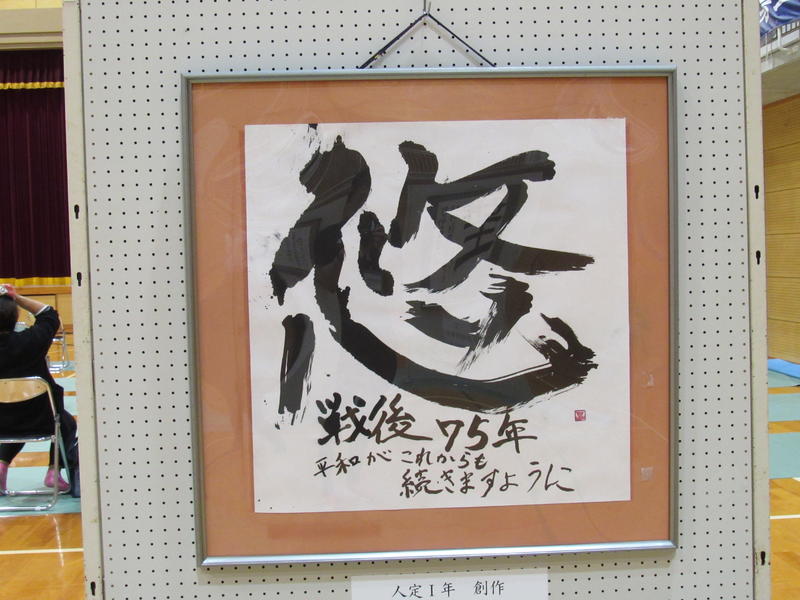 悠
戦後75年
平和がこれからも
続きますように
人定1年 創作